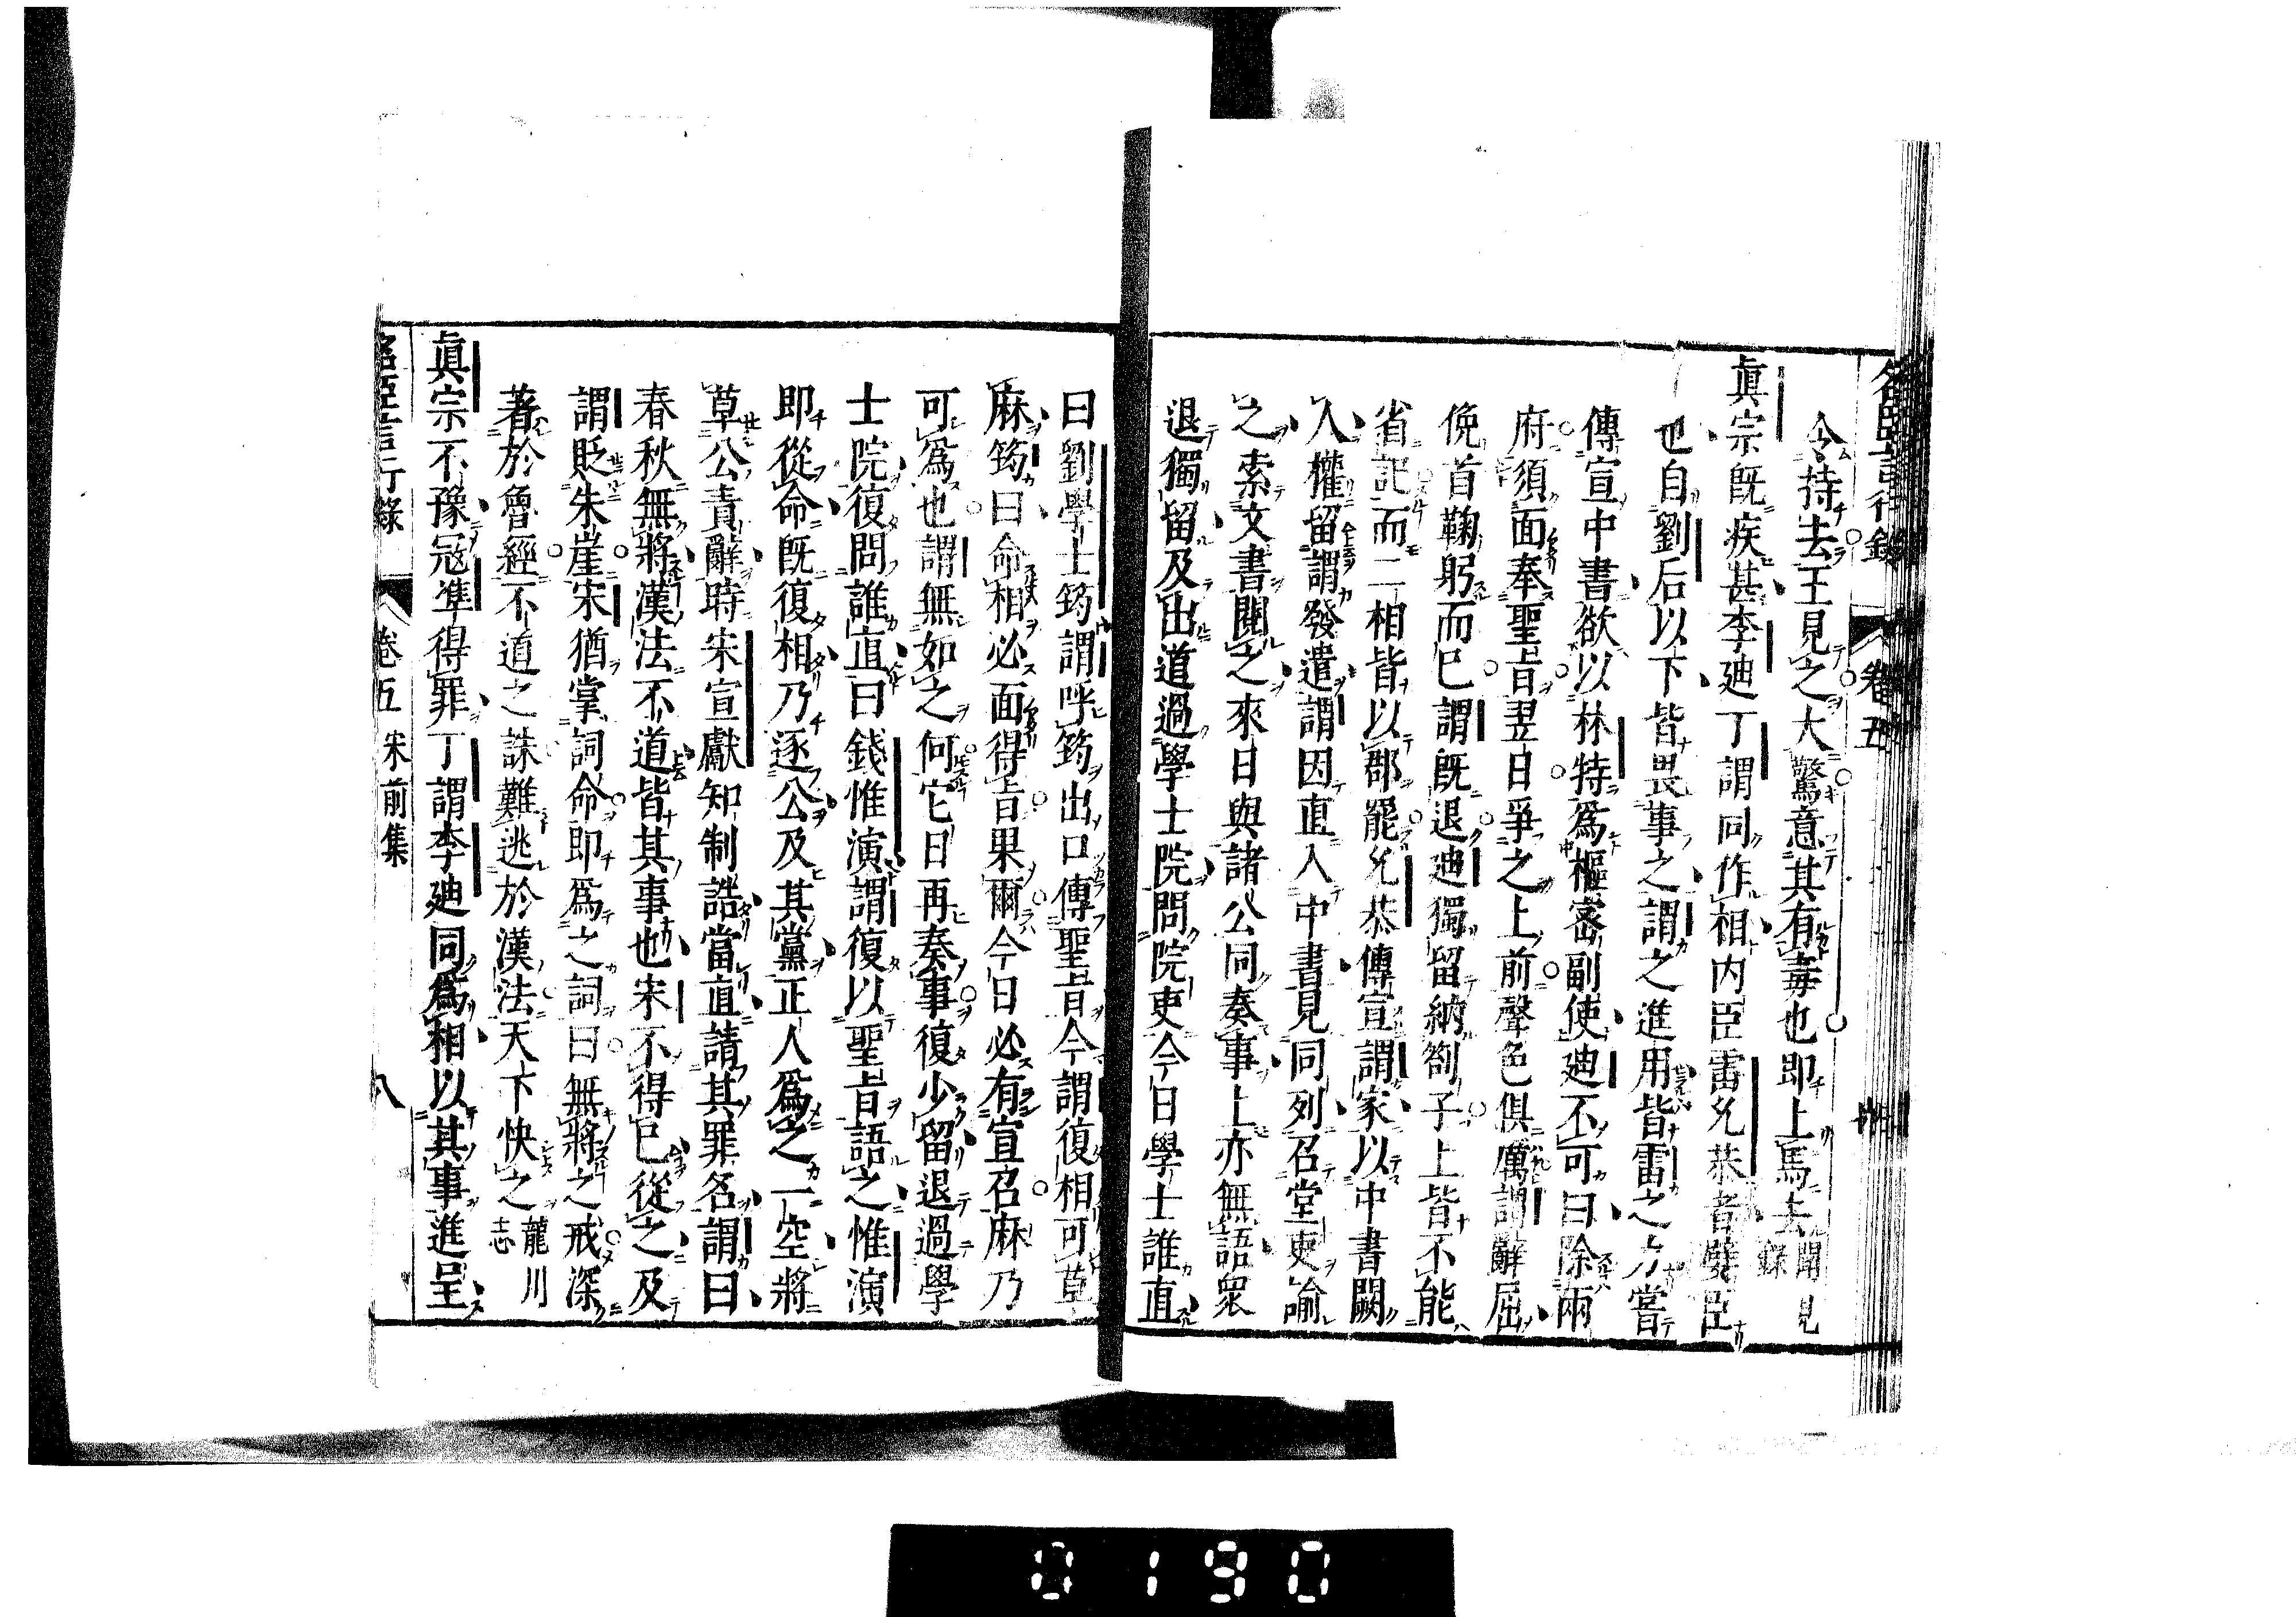 名臣言行錄 卷五
令持去王見之大驚意其有毒也即上馬去聞見錄
眞宗旣疾甚李廸丁謂同作相内臣雷允恭者嬖臣
也自劉后以下皆畏事之謂之進用皆雷之力嘗
傳宣中書欲以林特爲樞宻副使廸不可曰除兩
府須面奉聖旨翌日爭之上前聲色俱厲謂辭屈
俛首鞠躬而已謂旣退廸獨留納劄子上皆不能
省記而二相皆以郡罷允恭傳宣謂家以中書闕
人權留謂發遣謂因直入中書見同列召堂吏諭
之索文書閱之來日與諸公同奏事上亦無語衆
退獨留及出道過學士院問院吏今日學士誰直
曰劉學士筠謂呼筠出口傳聖旨今謂復相可草
麻筠曰命相必面得旨果爾今日必有宣召麻乃
可爲也謂無如之何它日再奏事復少留退過學
士院復問誰直曰錢惟演謂復以聖旨語之惟演
即從命旣復相乃逐公及其黨正人爲之一空將
草公責辭時宋宣獻知制誥當直請其罪名謂曰
春秋無將漢法不道皆其事也宋不得已從之及
謂貶朱崖宋猶掌詞命即爲之詞曰無將之戒深
著於魯經不道之誅難逃於漢法天下快之龍川志
眞宗不豫寇凖得罪丁謂李廸同爲相以其事進呈
名臣言行錄 卷五 宋前集 八
0190